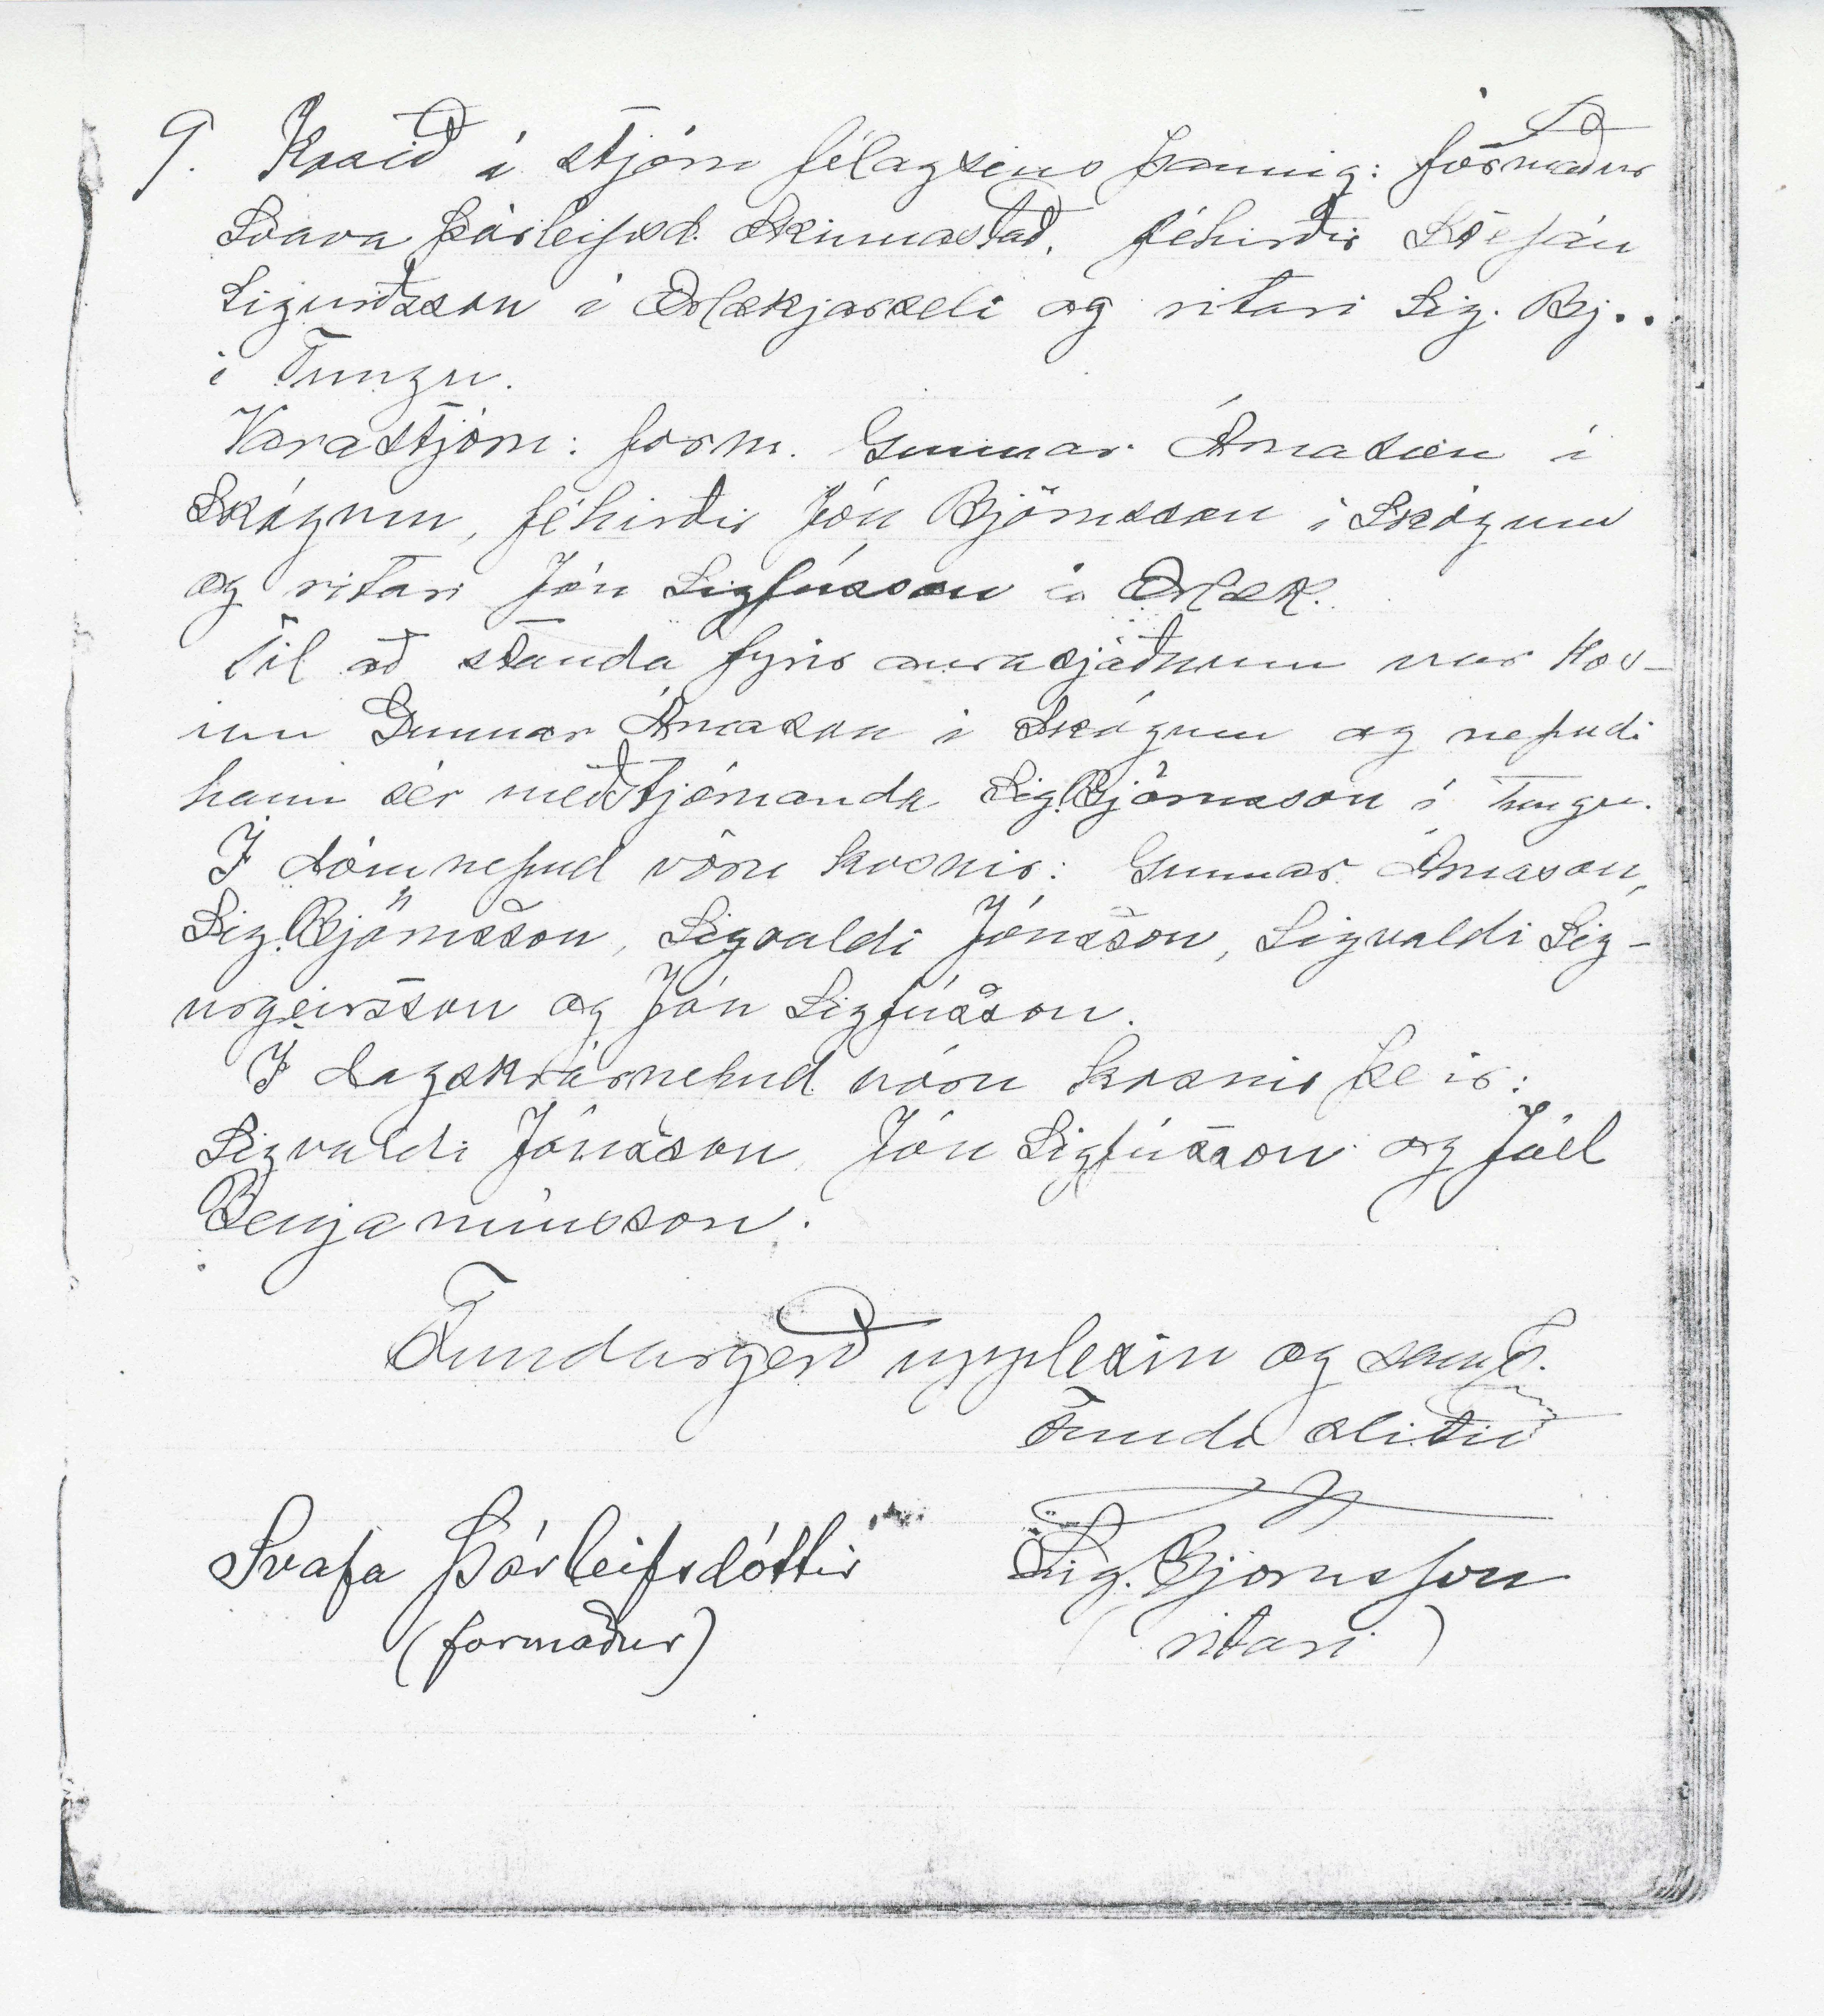 9. Kosið í stjórn félagsins þannig: formaður
Svava Þórleifsd. Skinnastað, féhirðir Stefán
Sigurðsson í Ærlækjarseli og ritari Sig. Bj..
í Tungu.
Varastjórn: form. Gunnar Árnason í
Skógum, féhirðir Jón Björnsson í Skógum
og ritari Jón Sigfússon á Ærlæk.
Til að standa fyrir aurasjóðnum var kos-
inn Gunnar Árnason í Skógum og nefndi
hann sér meðstjórnanda Sig. Björnsson í Tungu.
Í dómnefnd vóru kosnir: Gunnar Árnason,
Sig. Björnsson, Sigvaldi Jónsson, Sigvaldi Sig-
urgeirsson og Jón Sigfússon.
Í dagskrárnefnd vóru kosnir þeir:
Sigvaldi Jónsson, Jón Sigfússon og Jóel
Benjamínsson.
Fundargerð upplesin og samþ.
Fundi slitið
Svafa Þórleifsdóttir Sig. Björnsson
(formaður) (ritari)